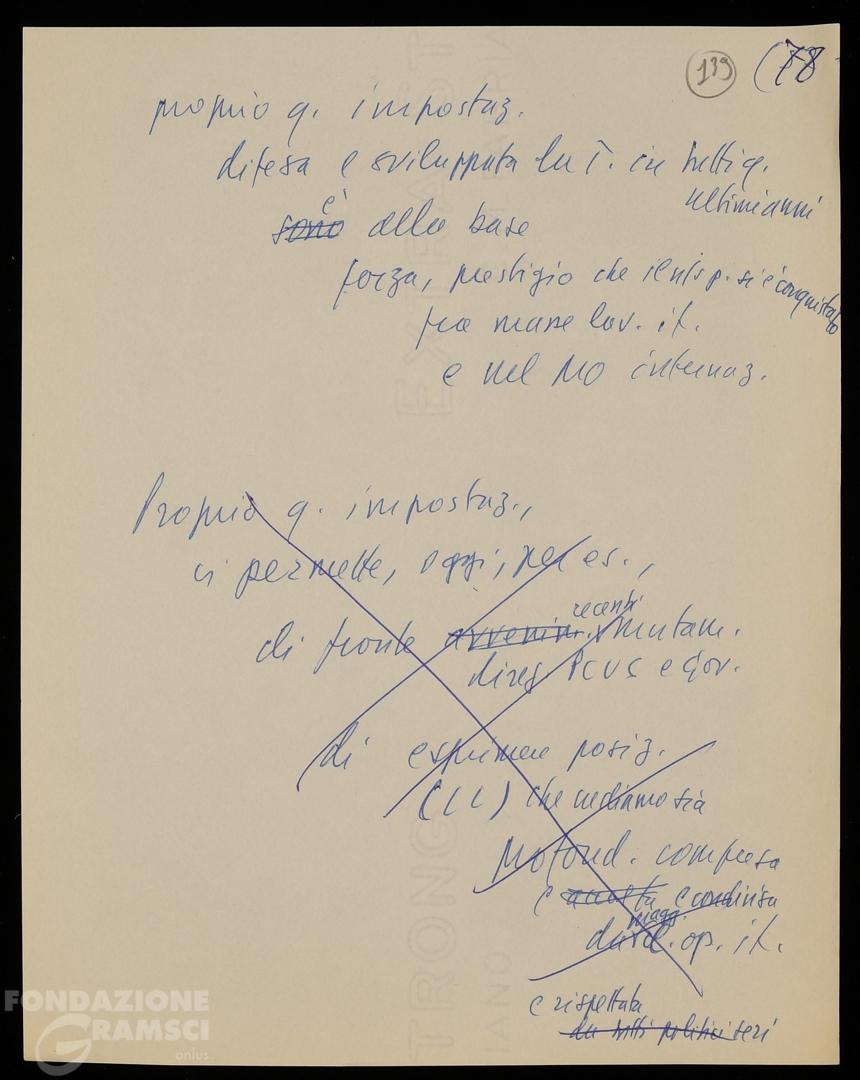 139 (78
proprio q. impostaz.
difesa e sviluppata in tutti q.
ultimi anni
è
sono alla base
forza, prestigio che si è conquistato
tra masse lav. it.
e nel MO internaz.
Proprio q. impostaz.,
ci permette, oggi, per es.,
recenti
di fronte avvenim. mutam.
direz. PCUS e Gov.
di esprimere posiz.
(CC) che vediamo sia
profond. compresa
e accolta e condivisa
magg.
da cl. op. it.
e rispettata
da tutti politici seri
FONDAZIONE
GRAMSCI
onlus